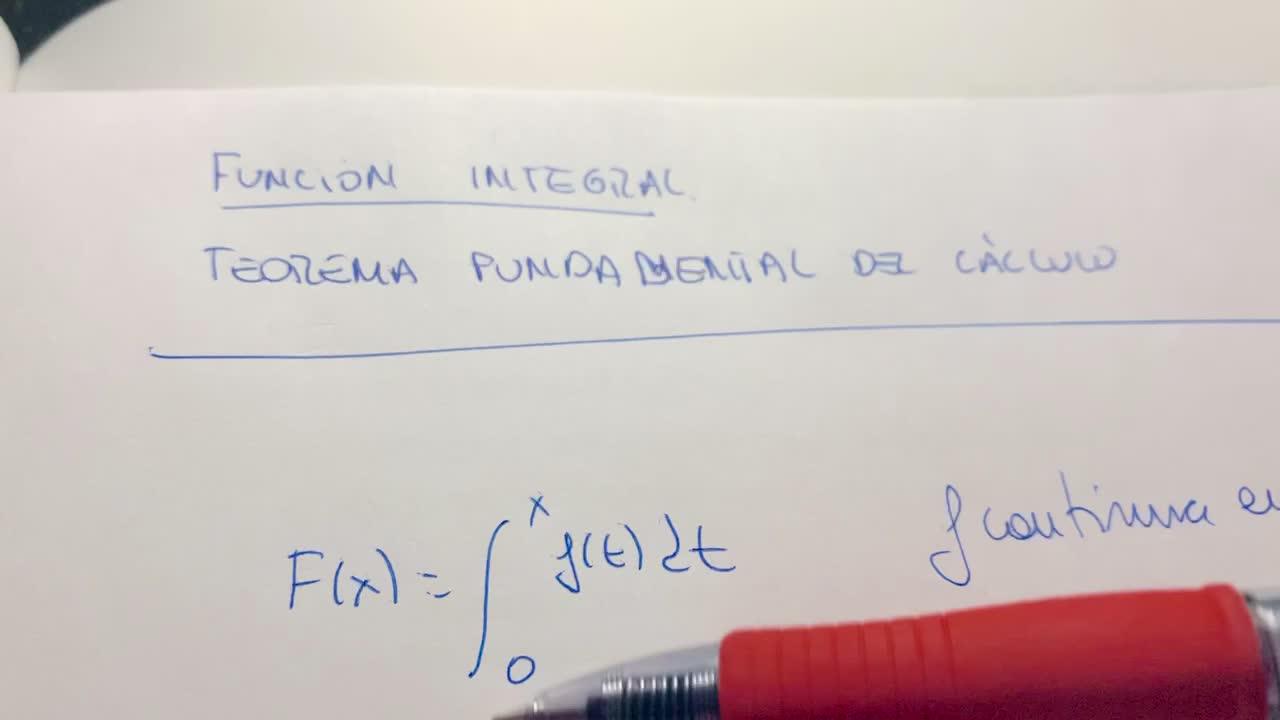 FUNCION INTEGRAL
TEOREMA FUNDAMENTAL DEL CÀLCULO
F(x) = ∫₀ˣ f(t) dt f continua en